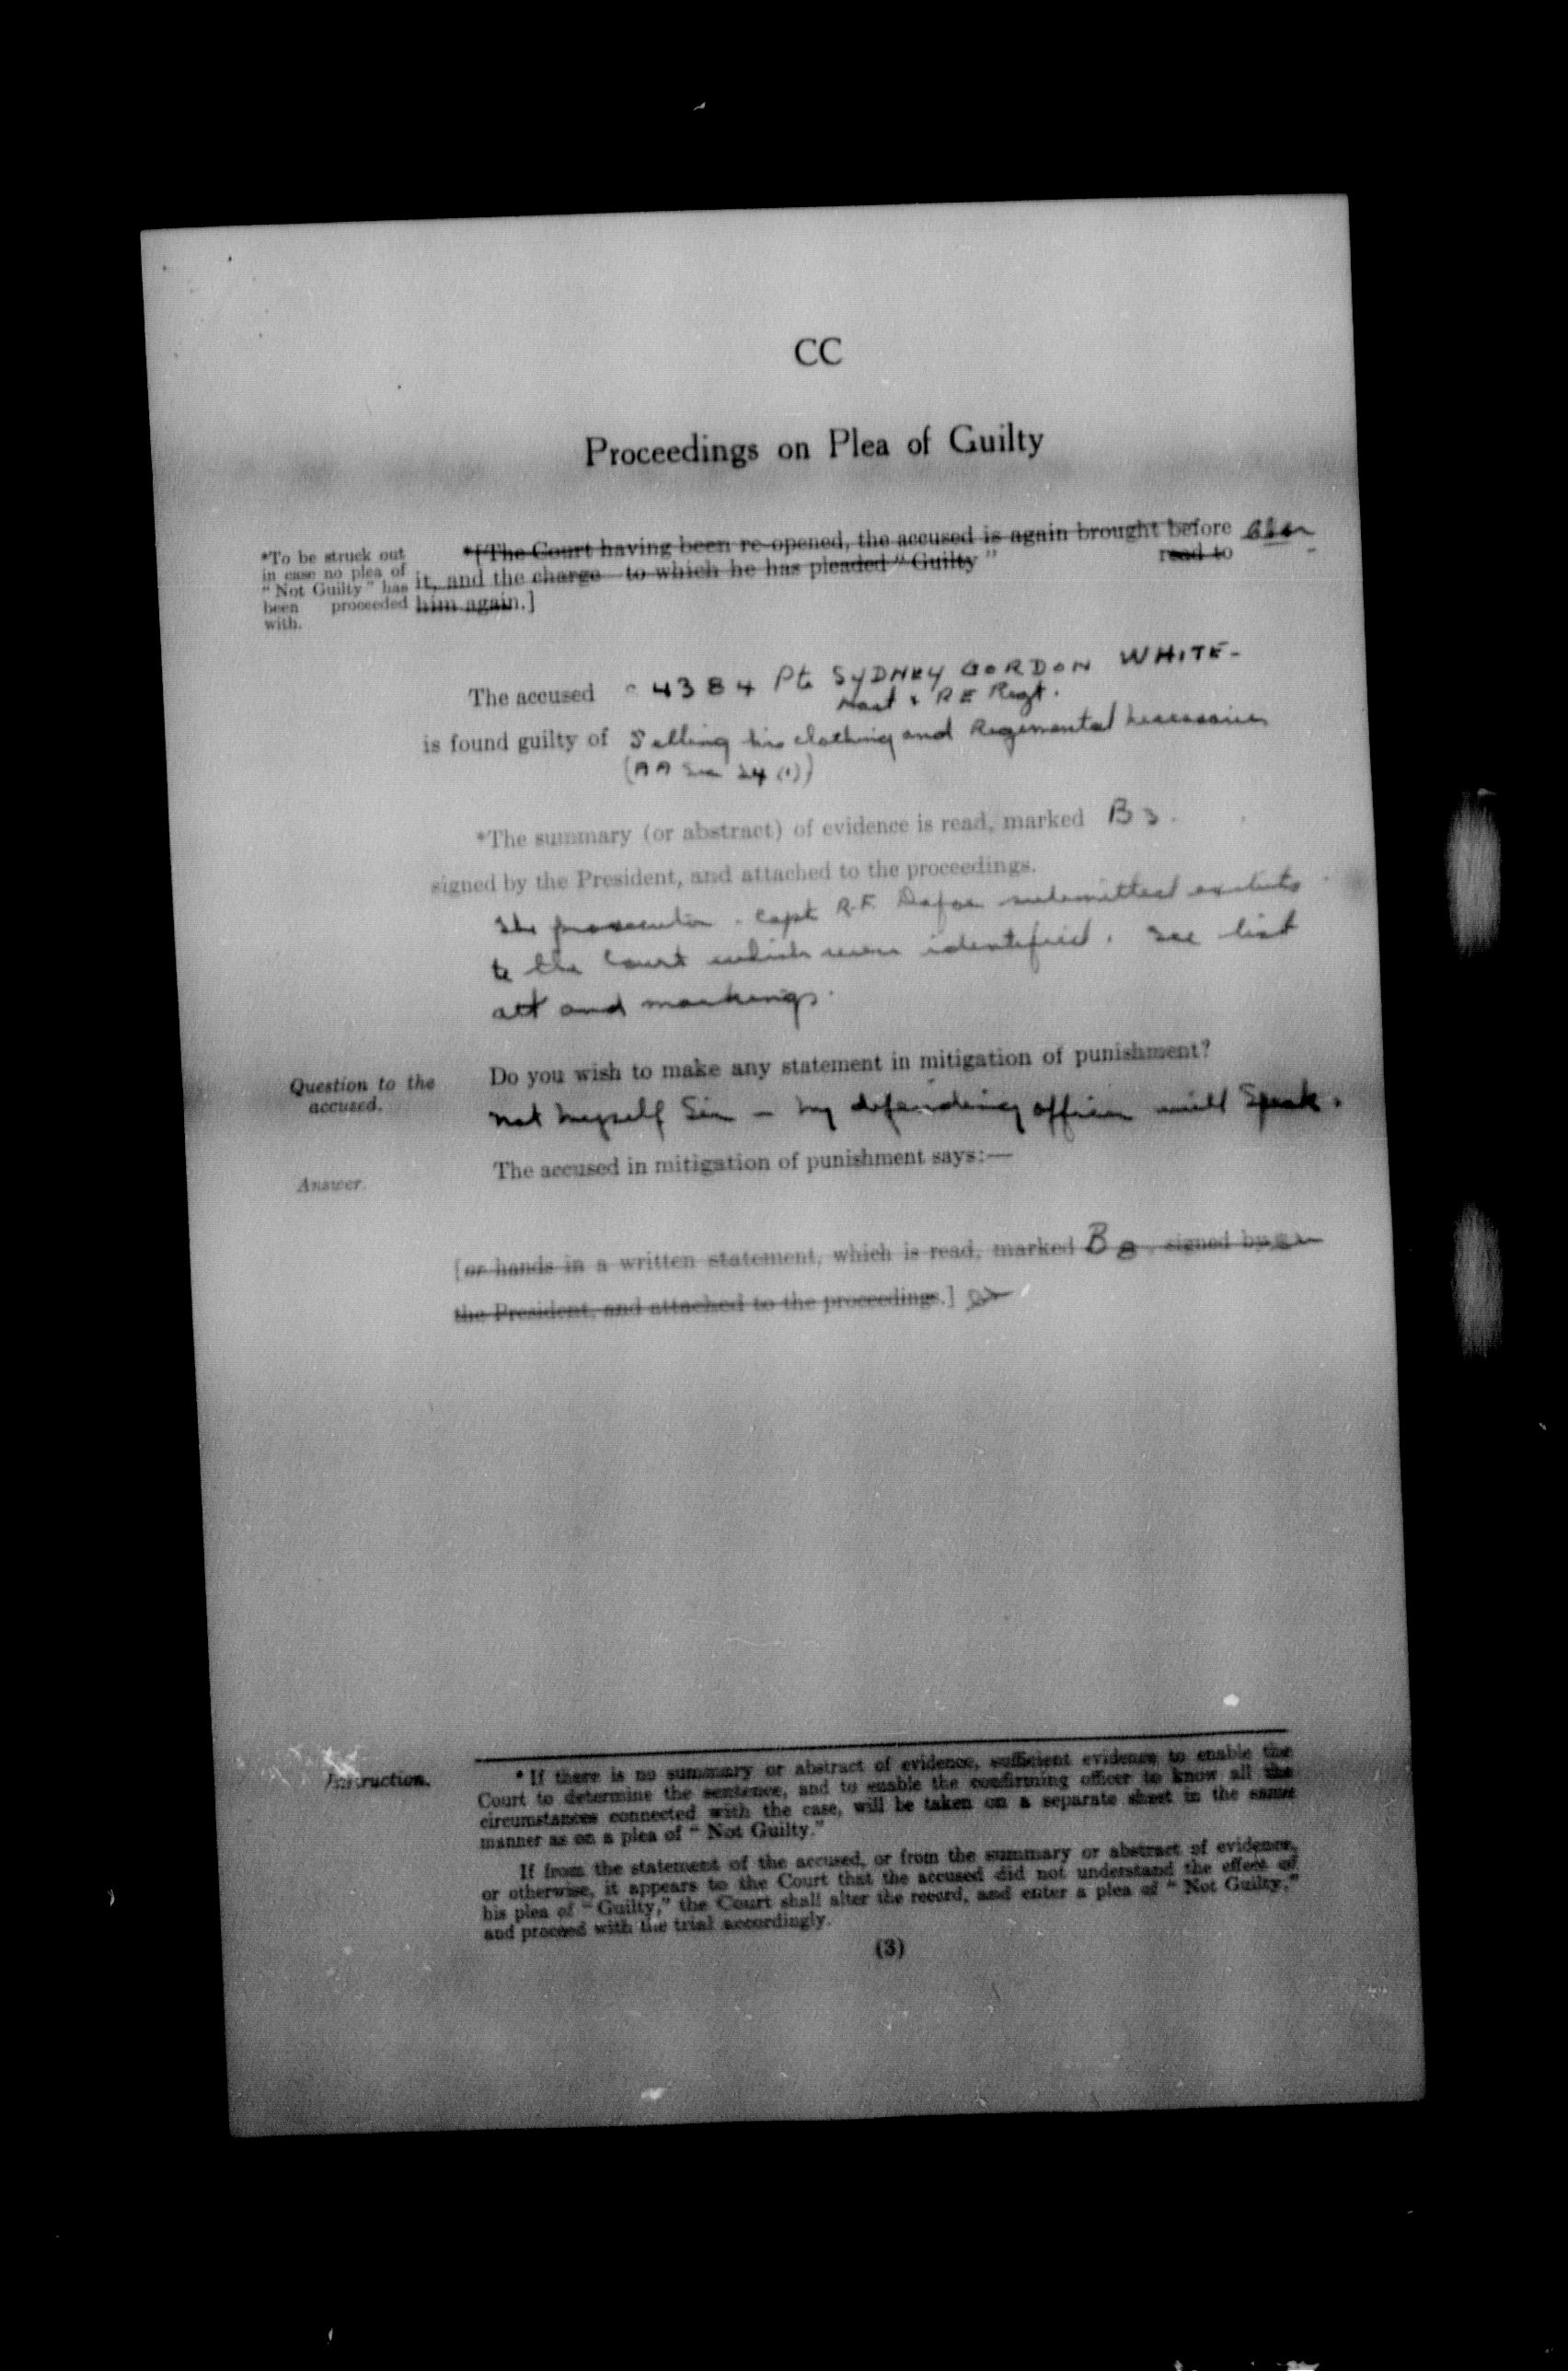 CC
Proceedings on Plea of Guilty
*To be struck out
in case no plea of
"Not Guilty" has
been proceeded
with.
*[The Court having been re-opened, the accused is again brought before
it, and the charge to which he has pleaded "Guilty" read to
him again.]
The accused C 4384 Pte SYDNEY GORDON WHITE-
Hast & P E Regt.
is found guilty of Selling his clothing and Regimental necessaries
(AA Sec 24 (1))
*The summary (or abstract) of evidence is read, marked B3.
signed by the President, and attached to the proceedings.
The prosecutor - Capt R.F. submitted exhibits
to the Court which were identified. See list
att and markings.
Question to the
accused.
Do you wish to make any statement in mitigation of punishment?
not myself Sir - my defending officer will speak.
Answer.
The accused in mitigation of punishment says:—
[or hands in a written statement, which is read, marked B 8, signed by
the President, and attached to the proceedings.]
Instruction.
* If there is no summary or abstract of evidence, sufficient evidence to enable the
Court to determine the sentence, and to enable the confirming officer to know all the
circumstances connected with the case, will be taken on a separate sheet in the same
manner as on a plea of "Not Guilty."
If from the statement of the accused, or from the summary or abstract of evidence,
or otherwise, it appears to the Court that the accused did not understand the effect of
his plea of "Guilty," the Court shall alter the record, and enter a plea of "Not Guilty,"
and proceed with the trial accordingly.
(3)